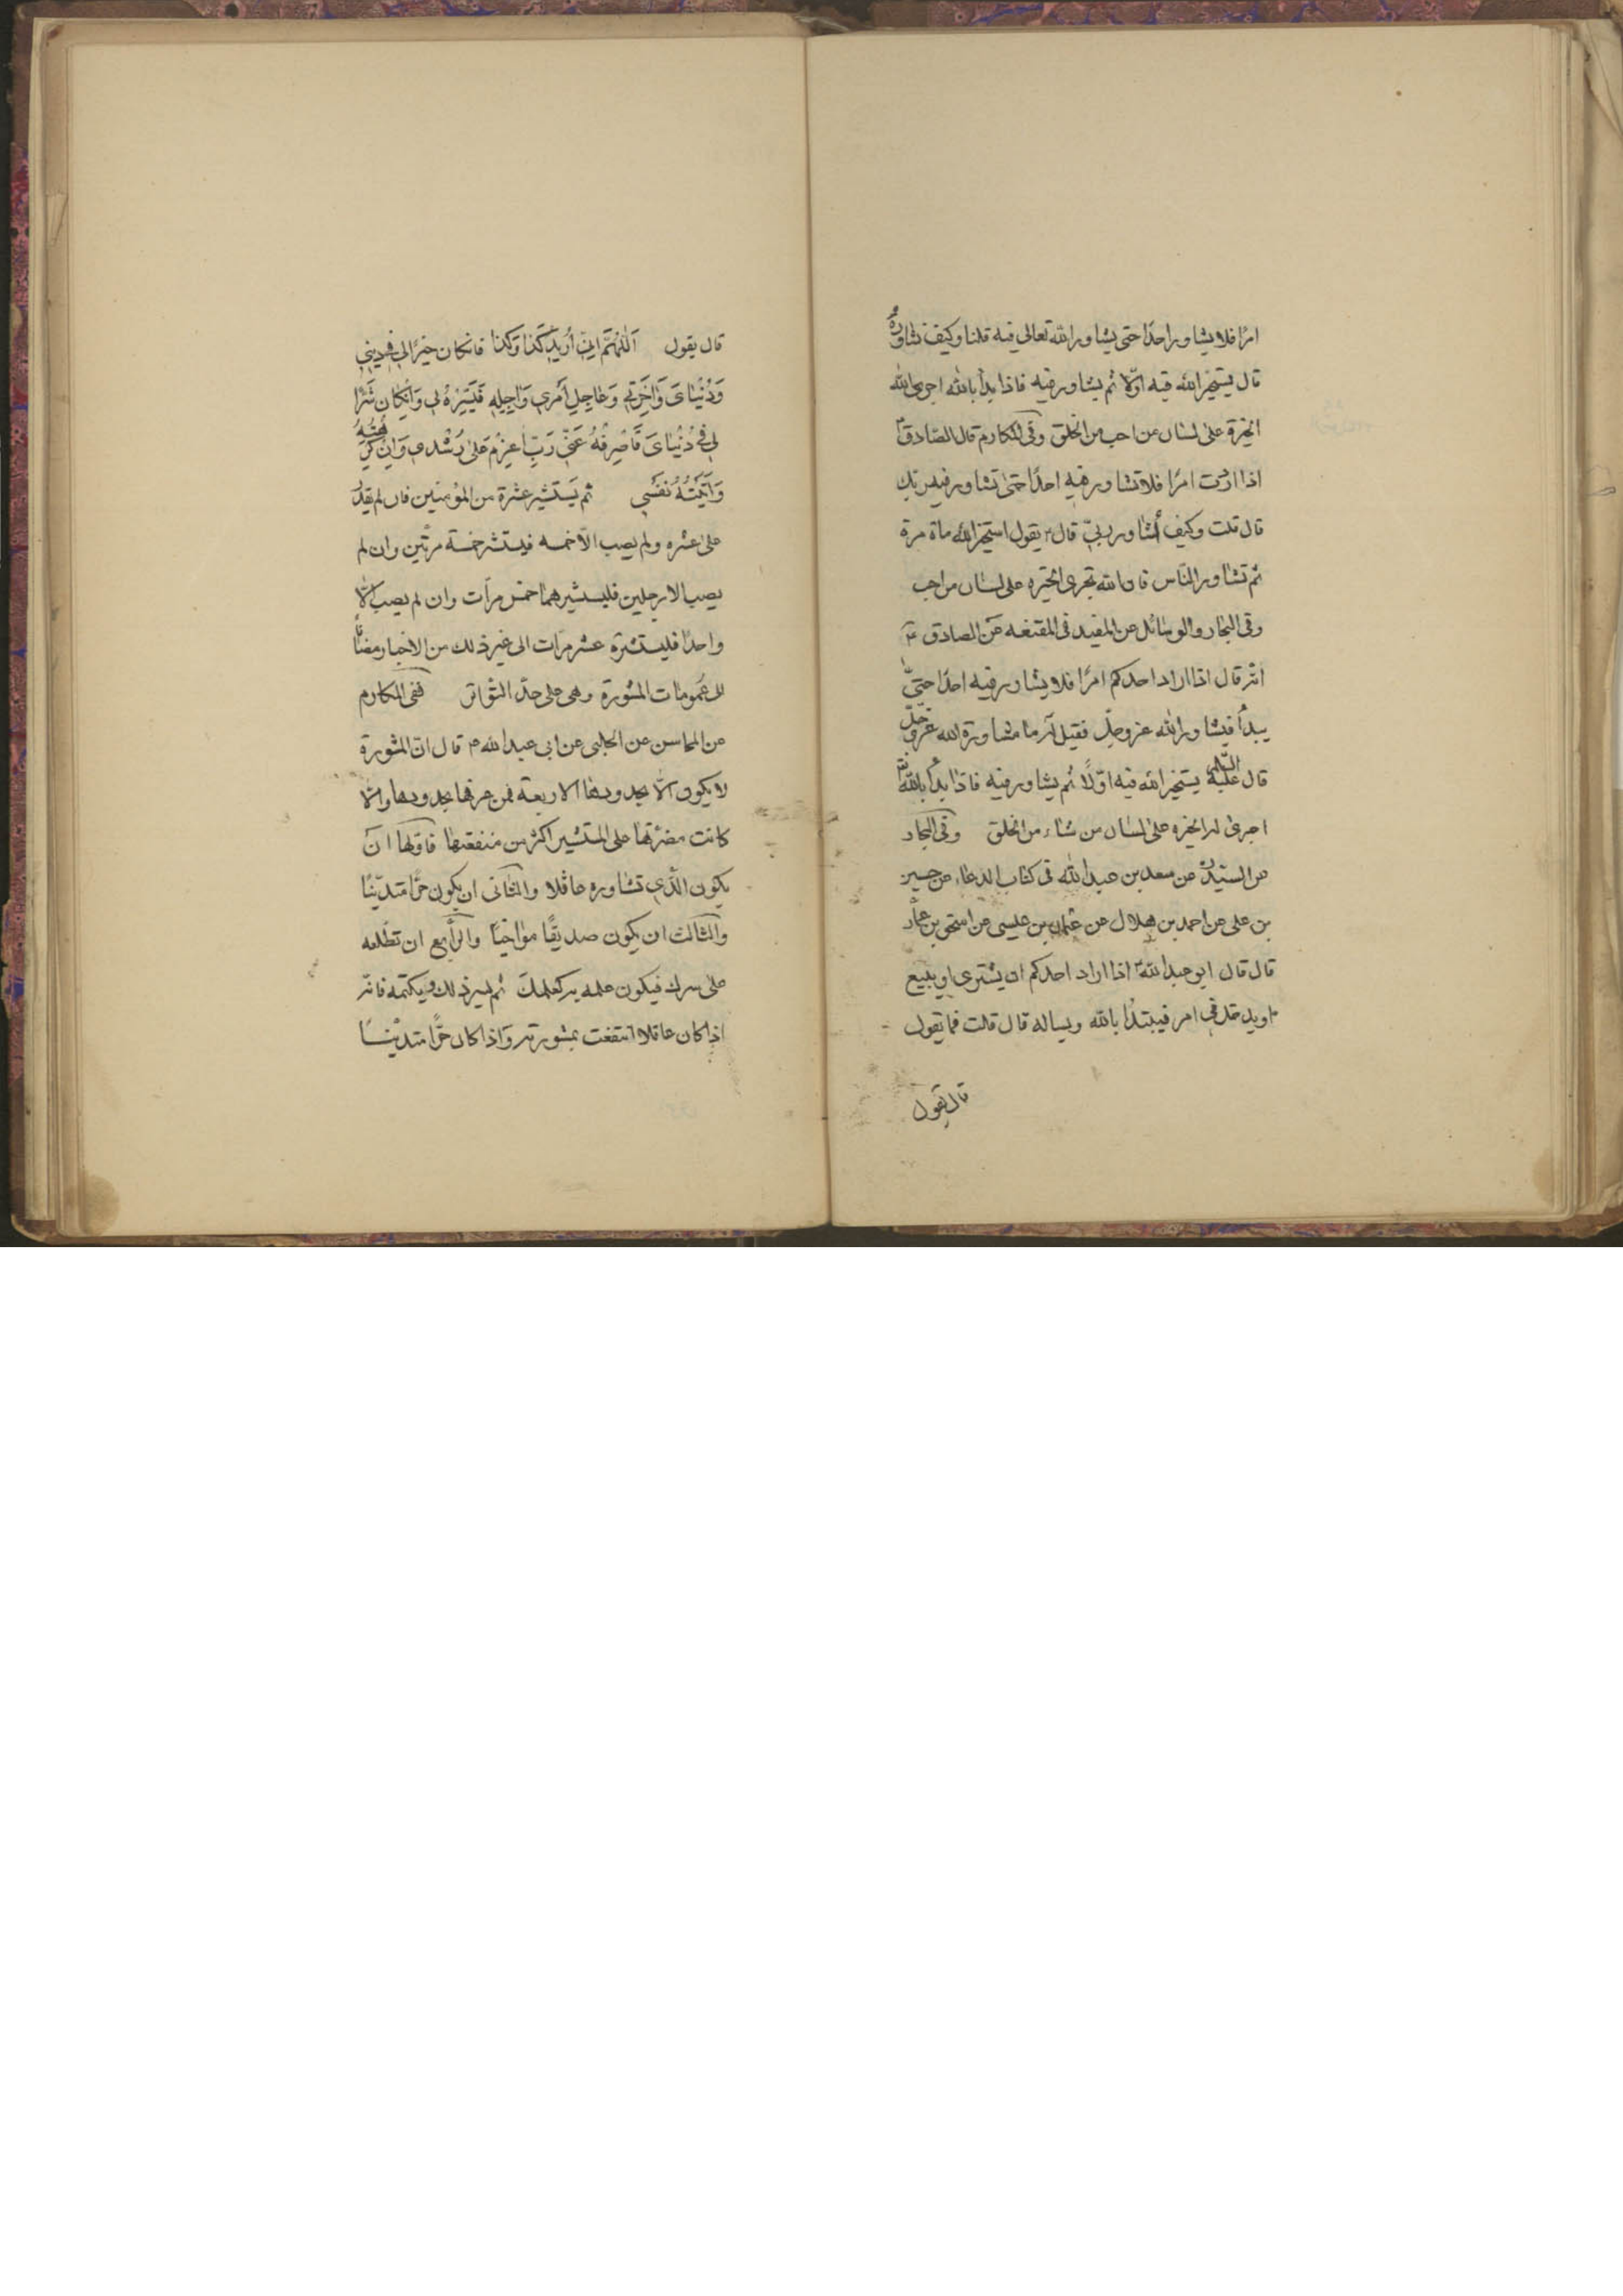 امرًا فلا يشاور احدًا حتى يشاور الله تعالى فيه قلنا وكيف نشاوره
قال يستخير الله فيه اوّلا ثم يشاور فيه فاذا بدأ بالله اجرى الله
الخيرة على لسان من احب من الخلق وفى المكارم قال الصّادق ع
اذا اردت امرًا فلا تشاور فيه احدًا حتّى تشاور فيه ربّك
قال قلت وكيف أشاور ربّي قال ع يقول استخير الله ماة مرة
ثم تشاور النّاس فان الله تجرى الخيره على لسان من احب
وفى البحار والوسائل عن المفيد فى المقنعه عن الصادق ع
انّه قال اذا اراد احدكم امرًا فلا يشاور فيه احدًا حتّى
يبدأ فيشاور الله عزوجلّ فقيل له ما مشاورة الله عزوجلّ
قال عليه السّلام يستخير الله فيه اوّلًا ثم يشاور فيه فاذا بدأ بالله
اجرى له الخيره على لسان من شاء من الخلق وفى البحار
عن السيّد عن سعد بن عبد الله فى كتاب الدعاء عن حسين
بن على عن احمد بن هلال عن عثمان بن عليسى عن اسحق بن عمّار
قال قال ابو عبد الله ع اذا اراد احدكم ان يشترى او يبيع
او يدخل فى امر فيبتدأ بالله ويساله قال قلت فما تقول
قال يقول
قال يقول اَللّهُمَّ اِنّي أُريدُ كَذا وَكَذا فانكان خَيْرًا لي في ديني
وَدُنْيٰايَ وَآخِرَتي وَعٰاجِلِ اَمْري وَآجِلِهِ فَيَسِّرْهُ لي وَاِنْكٰانَ شَرًّا
لي في دُنْيٰايَ فَاصْرِفْهُ عَنّي رَبِّ اعْزِمْ عَلىٰ رُشْدي وَاِنْ كَرِهَتْهُ
وَاَبَتْهُ نَفْسي ثم يَستشير عشرة من المؤمنين فان لم يقدر
على عشره ولم يصب الّا خمسه فيستشر خمسة مرّتين وان لم
يصب الا رجلين فليستشيرهما خمس مرّات وان لم يصب الّا
واحدًا فليستشره عشر مرّات الى غير ذلك من الاخبار مضافًا
الى عمومات المشورة وهى على حدّ التّواتر ففى المكارم
عن المحاسن عن الحلبى عن ابى عبد الله ع قال انّ المشورة
لا يكون الّا بحدودها الاربعة فمن عرفها بحدودها والّا
كانت مضرّتها على المستشير اكثر من منفعتها فاوّلها انّ
يكون الّذي تشاوره عاقلا والثّانى ان يكون حرًّا متديّنًا
والثّالث ان يكون صديقًا مواخيًا والرّابع ان تطلعه
على سرك فيكون علمه به كعلمك ثم يسرّ ذلك ويكتمه فانّه
اذا كان عاقلا انتفعت بمشورته وَاذا كان حرًّا متديّنًا